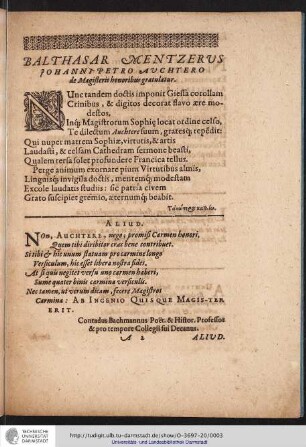 BALTHASAR MENTZERUS
JOHANNI PETRO AUCHTERO
de Magisterii honoribus gratulatur.
NUnc tandem doctis imponit Giessa corollam
Crinibus, & digitos decorat flavo ære modestos,
Inq; Magistrorum Sophię locat ordine celso,
Te dilectum Auchtere suum, gratesq; repẽdit:
Qui nuper matrem Sophiæ, virtutis, & artis
Laudasti, & celsam Cathedram sermone beasti,
Qualem tersa solet profundere Francica tellus.
Perge animum exornare pium Virtutibus almis,
Linguasq; invigila doctis, mentemq; modestam
Excole laudatis studiis: sic patria civem
Grato suscipiet gremio, æternumq; beabit.
ALIUD.
NOn, AUCHTERE, nego, promisi Carmen honori,
Quem tibi diribitor cras bene contribuet.
Si tibi & hic unum statuam pro carmine longo
Versiculum, hic esset libera nostra fides,
At si quis neget ex versu uno carmen haberi,
Sume quater binis carmina versiculis.
Nec tamen, ut verum dicam, fecere Magistros
Carmina: AB INGENIO QUISQUE MAGIS-TER
ERIT.
Conradus Bachmannus Poët. & Histor. Professor
& pro tempore Collegii sui Decanus.
A 2 ALIUD.
TECHNISCHE
UNIVERSITÄT
DARMSTADT
http://tudigit.ulb.tu-darmstadt.de/show/O-3697-20/0003
Universitäts- und Landesbibliothek Darmstadt